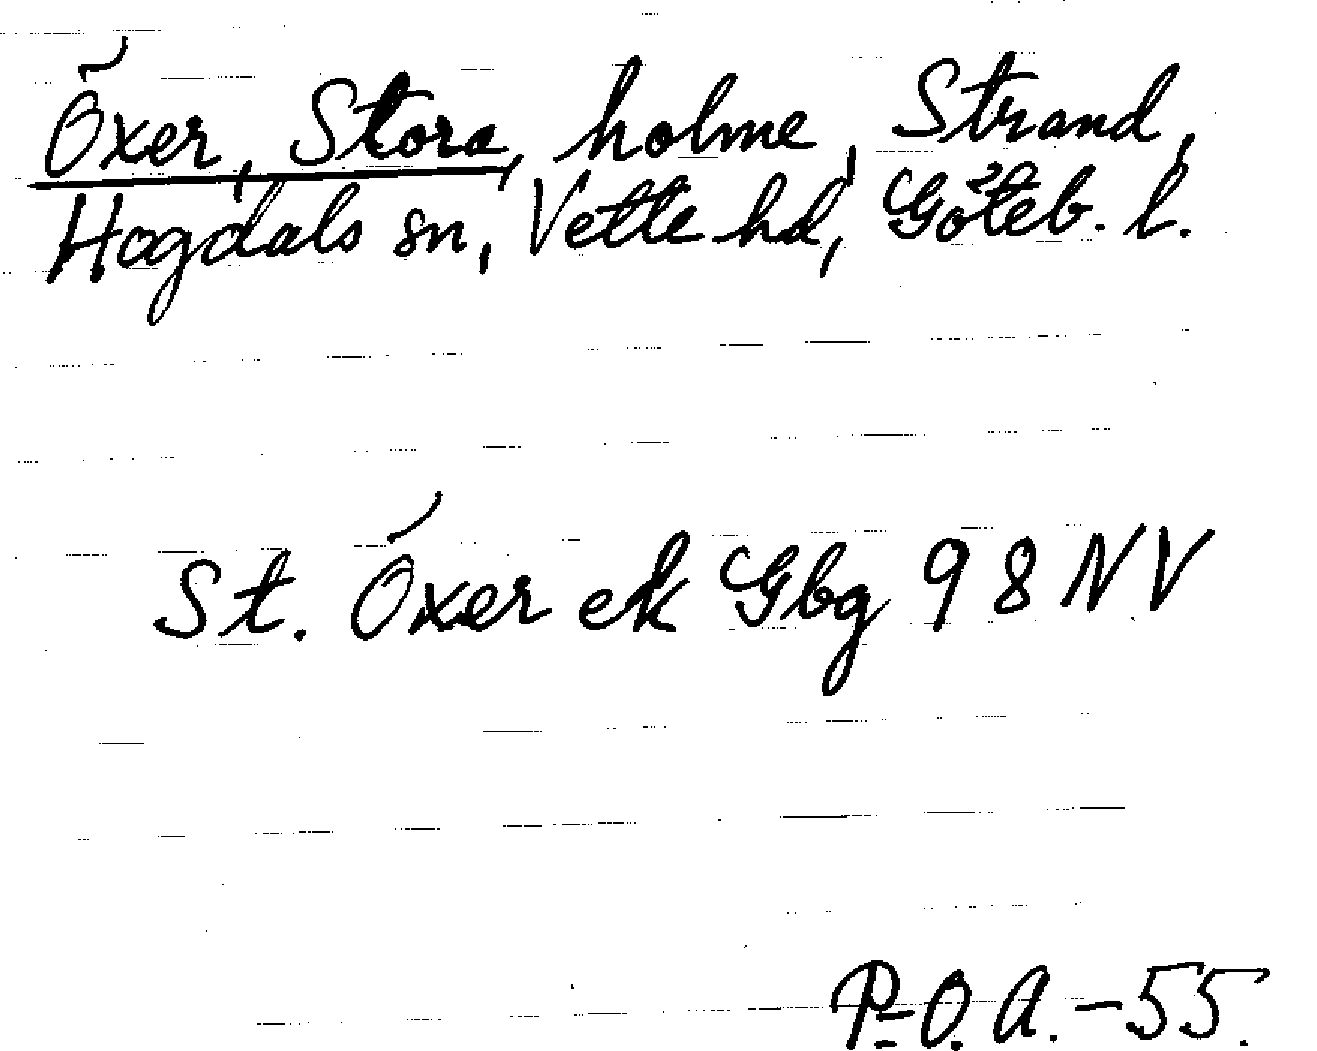 Öxer, Stora, holme, Strand,
Hogdals sn, Vette hd, Göteb. l.
St. Öxer ek Gbg 98 NV
P-O. A. -55.